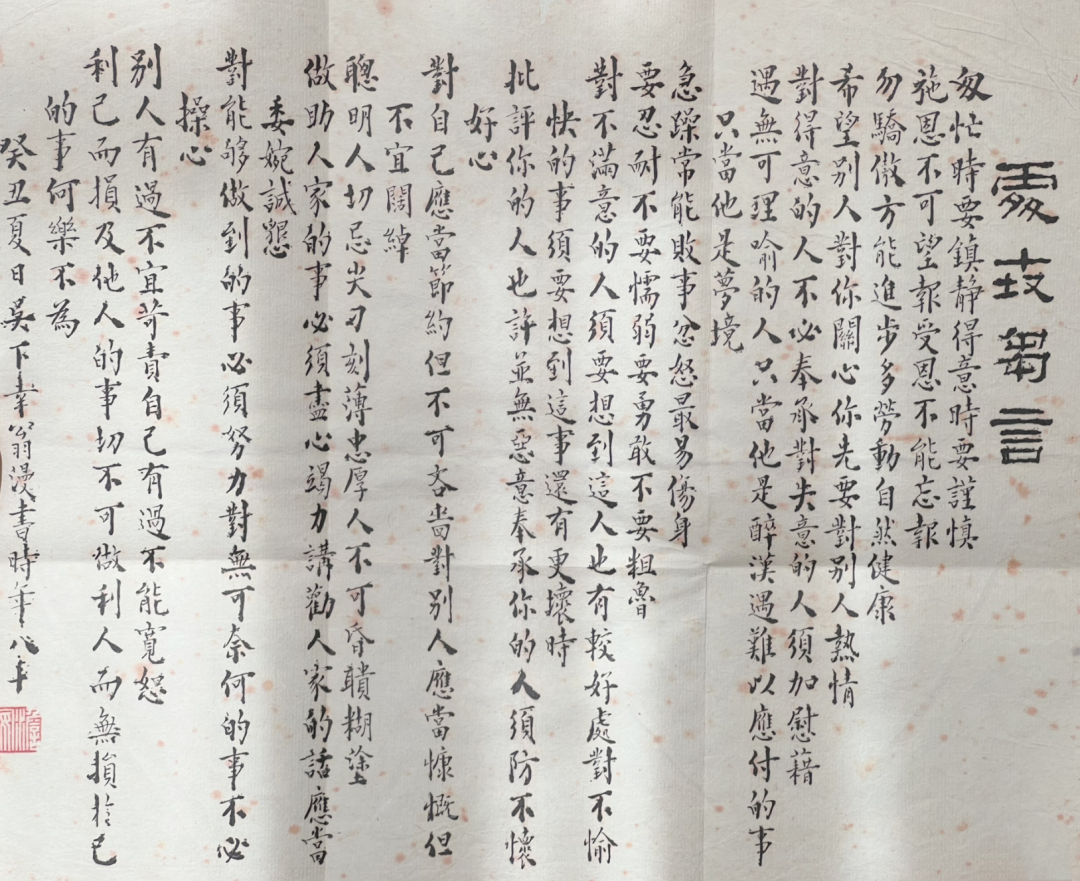 處世芻言
匆忙時要鎮静得意時要謹慎
施恩不可望報受恩不能忘報
勿驕傲方能進步多勞動自然健康
希望别人對你關心你先要對别人熱情
對得意的人不必奉承對失意的人須加慰藉
遇無可理喻的人只當他是醉漢遇難以應付的事
只當他是夢境
急躁常能敗事忿怒最易傷身
要忍耐不要懦弱要勇敢不要粗魯
對不滿意的人須要想到這人也有較好處對不愉
快的事須要想到這事還有更壞時
批評你的人也許並無惡意奉承你的人須防不懷
好心
對自己應當節約但不可吝嗇對别人應當慷慨但
不宜闊綽
聰明人切忌尖刁刻薄忠厚人不可昏聵糊塗
做助人家的事必須盡心竭力講勸人家的話應當
委婉誠懇
對能够做到的事必須努力對無可奈何的事不必
操心
别人有過不宜苛責自己有過不能寬恕
利己而損及他人的事切不可做利人而無損於己
的事何樂不為
癸丑夏日吳下幸翁漫書時年八十